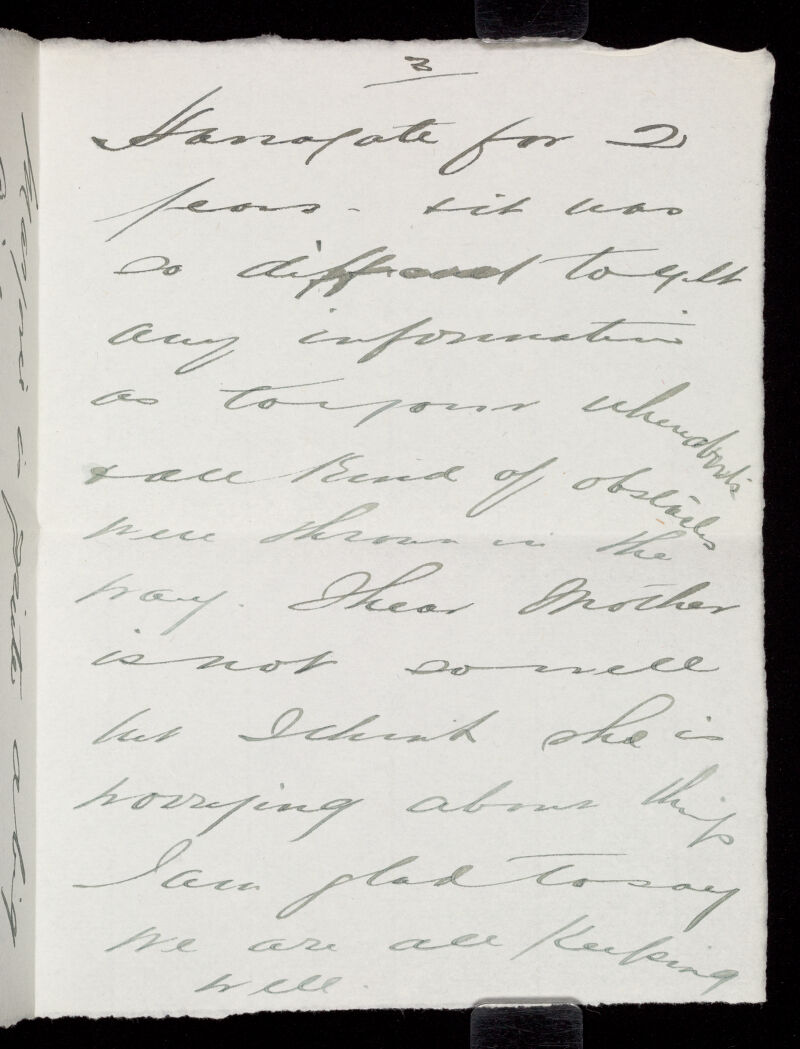 3
Harrogate for 2
years - & it was
so difficult to get
any information
as to your whereabouts
& all kind of obstacles
were thrown in the
way. I hear Mother
is not so well
but I think she is
worrying about things
I am glad to say
we are all keeping
well.